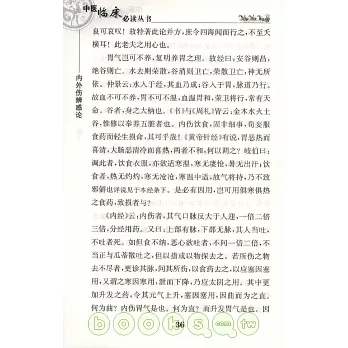 中医临床必读丛书
内外伤辨惑论
良可哀叹！故特著此论并方，庶令四海闻而行之，不至夭
横耳！此老夫之用心也。
胃气岂可不养，复明养胃之理。故经曰：安谷则昌，
绝谷则亡。水去则荣散，谷消则卫亡，荣散卫亡，神无所
依。仲景云：水入于经，其血乃成；谷入于胃，脉道乃行。
故血不可不养，胃不可不温，血温胃和，荣卫将行，常有天
命。谷者，身之大柄也。《书》与《周礼》皆云：金木水火土
谷，惟修以奉养五脏者也。内伤饮食，固非细事，苟妄服
食药而轻生损命，其可乎哉！《黄帝针经》有说，胃恶热而
喜清，大肠恶清冷而喜热，两者不和，何以调之？岐伯曰：
调此者，饮食衣服，亦欲适寒温，寒无凄怆，暑无出汗，饮
食者，热无灼灼，寒无沧沧，寒温中适，故气将持，乃不致
邪僻也详说见于本经条下。是必有因用，岂可用俱寒俱热
之食药，致损者与？
《内经》云：内伤者，其气口脉反大于人迎，一倍二倍
三倍，分经用药。又曰：上部有脉，下部无脉，其人当吐，
不吐者死。如但食不纳，恶心欲吐者，不问一倍二倍，不
当正与瓜蒂散吐之，但以指或以物探去之。若所伤之物
去不尽者，更诊其脉，问其所伤，以食药去之，以应塞因塞
用，又谓之寒因寒用，泄而下降，乃应太阴之用。其中更
加升发之药，令其元气上升，塞因塞用，因曲而为之直。
何为曲？内伤胃气是也。何为直？而升发胃气是也。因
36
books.com.tw